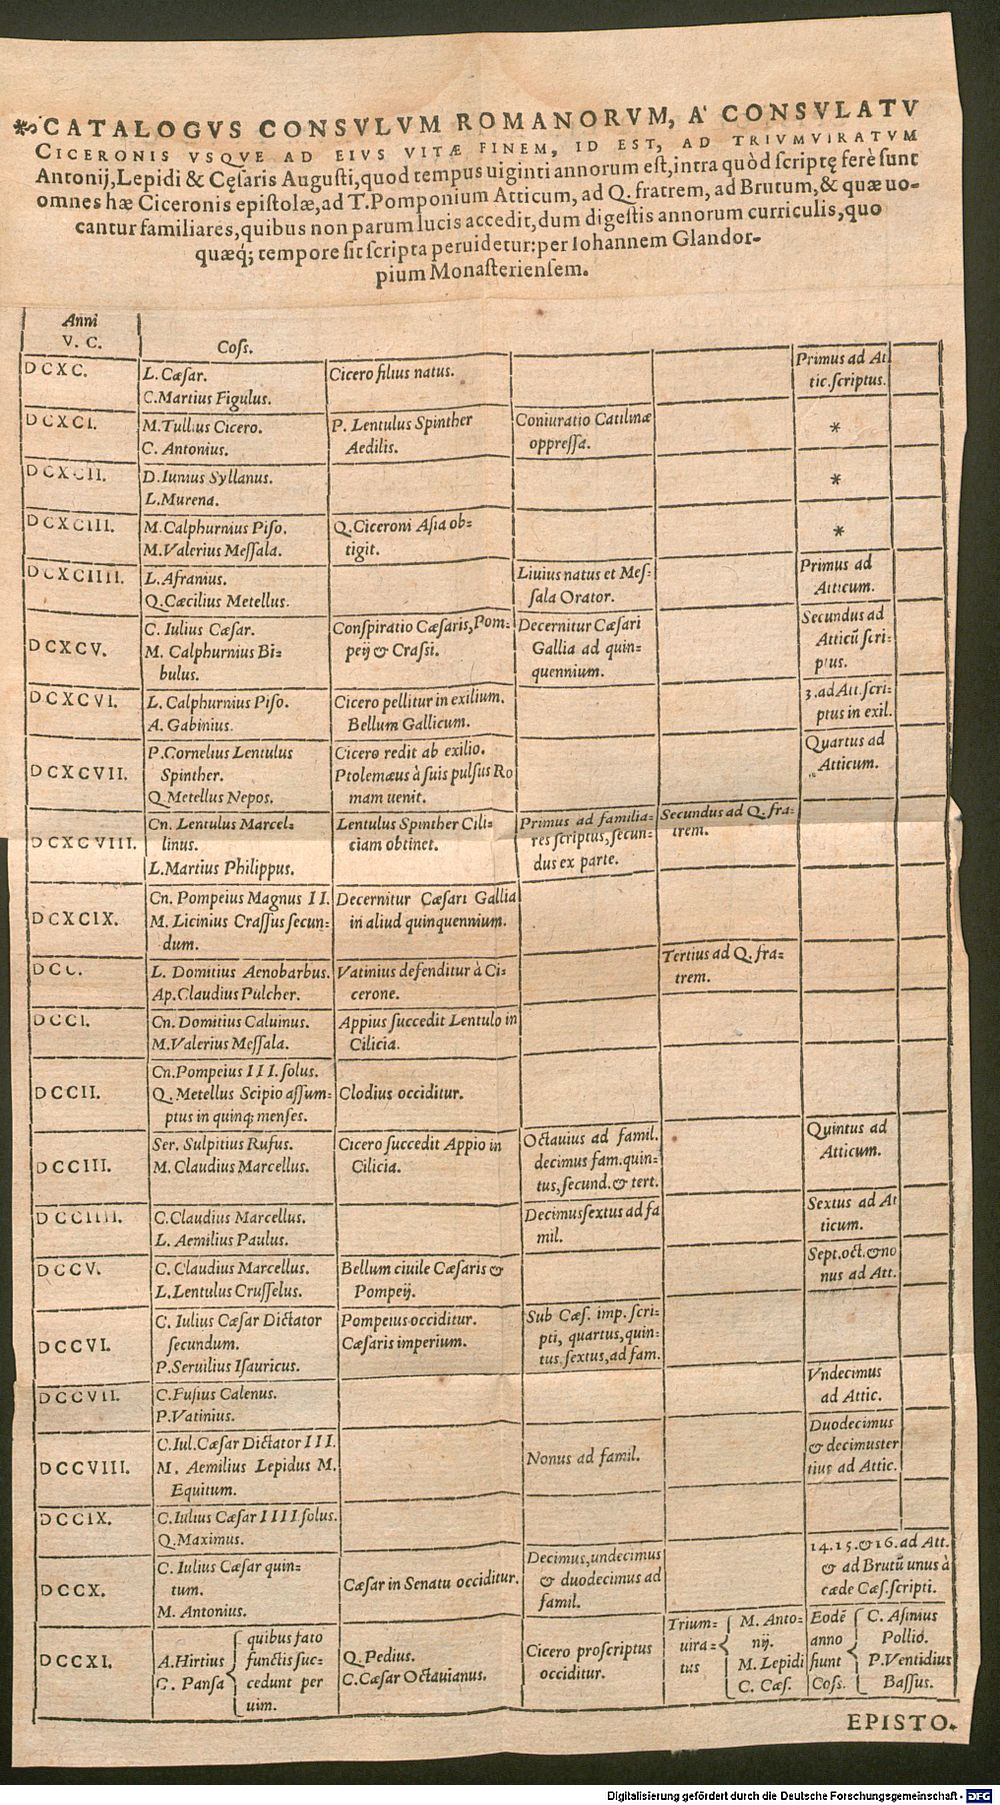 CATALOGVS CONSVLVM ROMANORVM, A' CONSVLATV
CICERONIS VSQVE AD EIVS VITÆ FINEM, ID EST, AD TRIVMVIRATVM
Antonij, Lepidi & Cęſaris Auguſti, quod tempus uiginti annorum eſt, intra quòd ſcriptę ferè ſunt
omnes hæ Ciceronis epiſtolæ, ad T. Pomponium Atticum, ad Q. fratrem, ad Brutum, & quæ uo-
cantur familiares, quibus non parum lucis accedit, dum digeſtis annorum curriculis, quo
quæq; tempore ſit ſcripta peruidetur: per Iohannem Glandor-
pium Monaſterienſem.
Anni
V. C.
Coſſ.
DCXC.
L. Cæſar.
C. Martius Figulus.
Cicero filius natus.
Primus ad At
tic. ſcriptus.
DCXCI.
M. Tullius Cicero.
C. Antonius.
P. Lentulus Spinther
Aedilis.
Coniuratio Catilinæ
oppreſſa.
*
DCXCII.
D. Iunius Syllanus.
L. Murena.
*
DCXCIII.
M. Calphurnius Piſo.
M. Valerius Meſſala.
Q. Ciceroni Aſia ob-
tigit.
*
DCXCIIII.
L. Afranius.
Q. Cæcilius Metellus.
Liuius natus et Meſ-
ſala Orator.
Primus ad
Atticum.
DCXCV.
C. Iulius Cæſar.
M. Calphurnius Bi-
bulus.
Conſpiratio Cæſaris, Pom-
peij & Craſſi.
Decernitur Cæſari
Gallia ad quin-
quennium.
Secundus ad
Atticū ſcri-
ptus.
DCXCVI.
L. Calphurnius Piſo.
A. Gabinius.
Cicero pellitur in exilium.
Bellum Gallicum.
3. ad Att. ſcri-
ptus in exil.
DCXCVII.
P. Cornelius Lentulus
Spinther.
Q. Metellus Nepos.
Cicero redit ab exilio.
Ptolemæus à ſuis pulſus Ro
mam uenit.
Quartus ad
Atticum.
DCXCVIII.
Cn. Lentulus Marcel-
linus.
L. Martius Philippus.
Lentulus Spinther Cili-
ciam obtinet.
Primus ad familia-
res ſcriptus, ſecun-
dus ex parte.
Secundus ad Q. fra-
trem.
DCXCIX.
Cn. Pompeius Magnus II.
M. Licinius Craſſus ſecun-
dum.
Decernitur Cæſari Gallia
in aliud quinquennium.
DCC.
L. Domitius Aenobarbus.
Ap. Claudius Pulcher.
Vatinius defenditur à Ci-
cerone.
Tertius ad Q. fra-
trem.
DCCI.
Cn. Domitius Caluinus.
M. Valerius Meſſala.
Appius ſuccedit Lentulo in
Cilicia.
DCCII.
Cn. Pompeius III. ſolus.
Q. Metellus Scipio aſſum-
ptus in quinq; menſes.
Clodius occiditur.
DCCIII.
Ser. Sulpitius Rufus.
M. Claudius Marcellus.
Cicero ſuccedit Appio in
Cilicia.
Octauius ad famil.
decimus fam. quin-
tus, ſecund. & tert.
Quintus ad
Atticum.
DCCIIII.
C. Claudius Marcellus.
L. Aemilius Paulus.
Decimusſextus ad fa
mil.
Sextus ad At
ticum.
DCCV.
C. Claudius Marcellus.
L. Lentulus Cruſſelus.
Bellum ciuile Cæſaris &
Pompeij.
Sept. oct. & no
nus ad Att.
DCCVI.
C. Iulius Cæſar Dictator
ſecundum.
P. Seruilius Iſauricus.
Pompeius occiditur.
Cæſaris imperium.
Sub Cæſ. imp. ſcri-
pti, quartus, quin-
tus, ſextus, ad fam.
DCCVII.
C. Fuſius Calenus.
P. Vatinius.
Vndecimus
ad Attic.
DCCVIII.
C. Iul. Cæſar Dictator III.
M. Aemilius Lepidus M.
Equitum.
Nonus ad famil.
Duodecimus
& decimuster
tius ad Attic.
DCCIX.
C. Iulius Cæſar IIII. ſolus.
Q. Maximus.
DCCX.
C. Iulius Cæſar quin-
tum.
M. Antonius.
Cæſar in Senatu occiditur.
Decimus, undecimus
& duodecimus ad
famil.
14. 15. & 16. ad Att.
& ad Brutū unus à
cæde Cæſ. ſcripti.
DCCXI.
A. Hirtius
C. Panſa
quibus fato
functis ſuc-
cedunt per
uim.
Q. Pedius.
C. Cæſar Octauianus.
Cicero proſcriptus
occiditur.
Trium-
uira-
tus
M. Anto-
nij.
M. Lepidi
C. Cæſ.
Eodē
anno
fiunt
Coſſ.
C. Aſinius
Pollio.
P. Ventidius
Baſſus.
EPISTO.
Digitalisierung gefördert durch die Deutsche Forschungsgemeinschaft - DFG